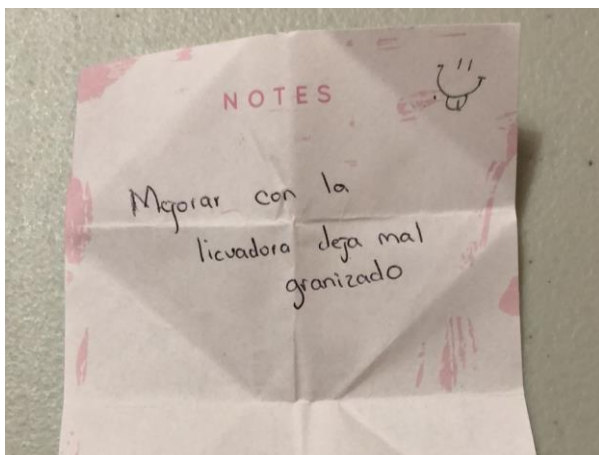 NOTES
Mejorar con la
licuadora deja mal
granizado